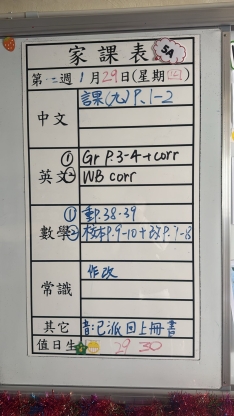 家課表 5A
第二週 1月29日(星期四)
中文 言課(九)P.1-2
① Gr P.3-4+corr
英文② WB corr
① P.38-39
數學② P.9-10+ P.7-8
常識 作改
其它 音:已派回上冊書
值日生 29 30